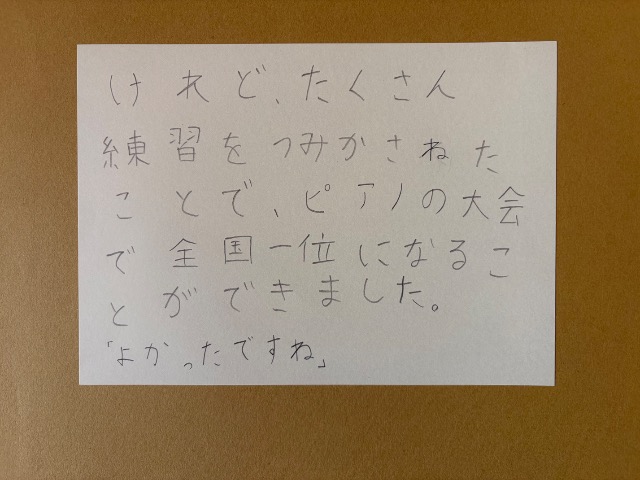 けれど、たくさん
練習をつみかさねた
ことで、ピアノの大会
で全国一位になるこ
とができました。
「よかったですね」